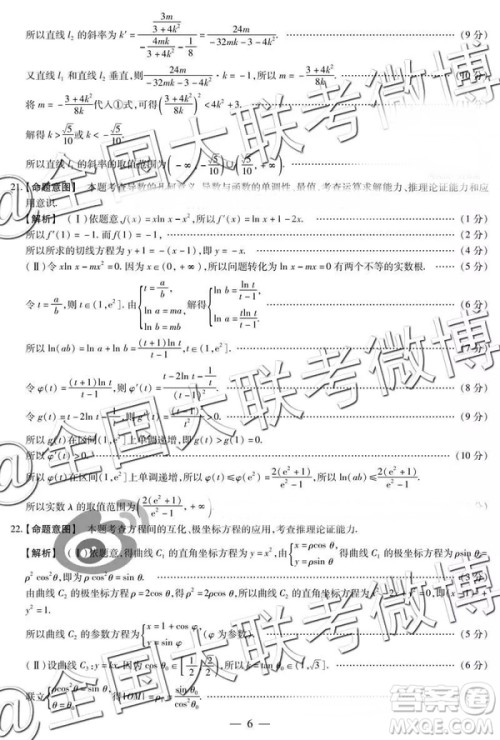 所以直线 l₂ 的斜率为 k' = (3m/(3+4k²))/(-4mk/(3+4k²) - 1/8) = 24m/(-32mk-3-4k²). (9 分)
又直线 l₁ 和直线 l₂ 垂直,则 24m/(-32mk-3-4k²)·k = -1,所以 m = -(3+4k²)/8k. (10 分)
将 m = -(3+4k²)/8k 代入①式,可得((3+4k²)/8k)² < 4k²+3.
解得 k > √5/10 或 k < -√5/10.
所以直线 l₁ 的斜率的取值范围为(-∞, -√5/10)∪(√5/10
21.【命题意图】 本题考查导数的几何意义、导数与函数的单调性、最值,考查运算求解能力、推理论证能力和应
用意识.
【解析】 (Ⅰ)依题意,f(x) = xln x - x²,所以 f'(x) = ln x + 1 - 2x. (1 分)
所以 f'(1) = -1. 而 f(1) = -1, (2 分)
所以所求的切线方程为 y + 1 = -(x-1),即 y = -x. (4 分)
(Ⅱ)令 xln x - mx² = 0. 因为 x∈(0, +∞),所以问题转化为 ln x - mx = 0 有两个不等的实数根. (5 分)
令 t = a/b,则 t∈(1,e²]. 由{t = a/b, ln a = ma, ln b = mb, 解得{ln b = ln t/(t-1), ln a = tln t/(t-1),
所以 ln(ab) = ln a + ln b = (t+1)ln t/(t-1).
令 φ(t) = (t+1)ln t/(t-1),则 φ'(t) = (t-2ln t-1/t)/(t-1)². (8 分)
令 g(t) = t-2ln t-1/t,则 g'(t) = (t-1)²/t² > 0. (9 分)
所以 g(t) 在区间(1,e²]上单调递增,所以 g(t) > g(1) = 0. (10 分)
所以 φ(t) 在区间(1,e²]上单调递增,所以 φ(t) ≤ φ(e²) = 2(e²+1)/(e²-1),所以 ln(ab) ≤ 2(e²+1)/(e²-1).
所以实数 λ 的取值范围为[2(e²+1)/(e²-1),
22.【命题意图】 本题考查方程间的互化、极坐标方程的应用,考查推理论证能力.
【解析】 (Ⅰ)依题意,得曲线 C₁ 的直角坐标方程为 y = x²,由{x = ρcos θ, y = ρsin θ, 得曲线 C₁ 的极坐标方程为 ρsin θ =
ρ²cos²θ,即为 ρcos²θ = sin θ. (3 分)
由曲线 C₂ 的极坐标方程 ρ = 2cos θ,得 ρ² = 2ρcos θ,所以曲线 C₂ 的直角坐标方程为(x-1)² +
y² = 1.
所以曲线 C₂ 的参数方程为{x = 1 + cos φ, y = sin φ (5 分)
(Ⅱ)设曲线 C₃: y = kx. 因为 θ₀∈ 所以 k = tan θ₀∈(1,√3]. (6 分)
联立{ρcos²θ = sin θ, θ = θ₀, 得|OM| = ρ₁ = sin θ₀/cos²θ₀.
— 6 —
@全国大联考微博
@全国大联考微博
@全国大联考微博
答案圈